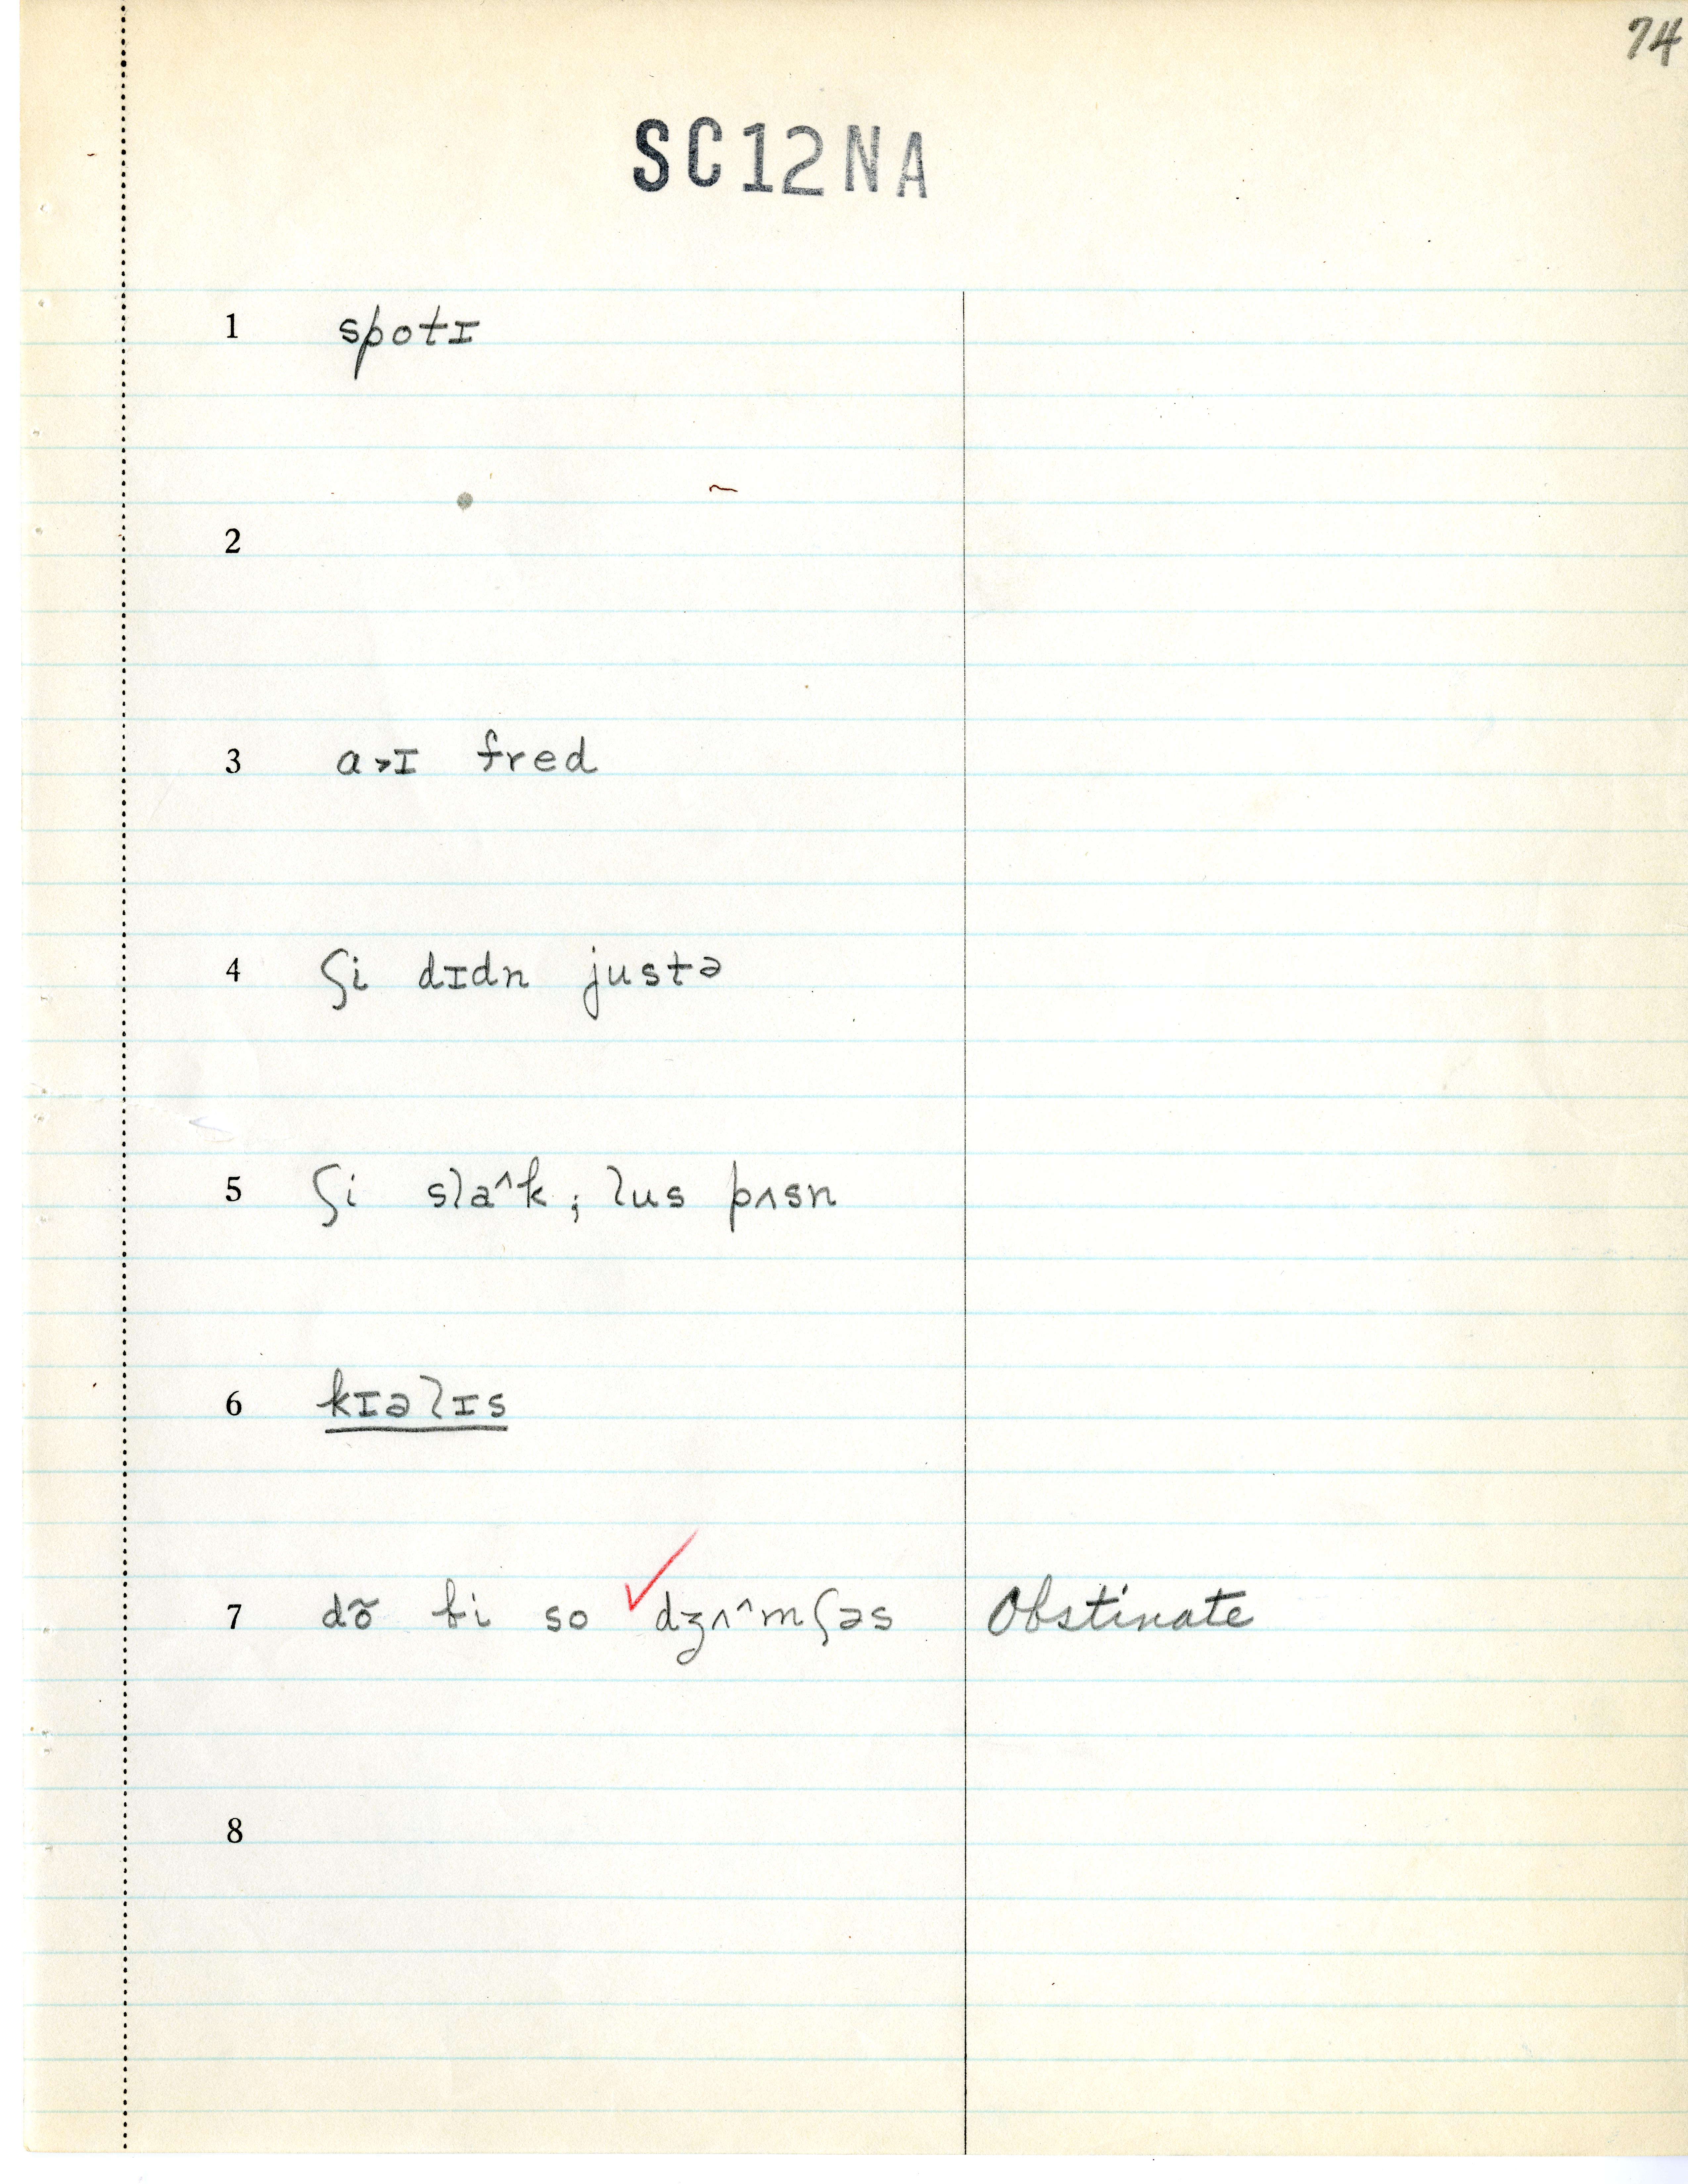 74
SC12NA
1 spotɪ
2
3 a˃ɪ fred
4 ʃi dɪdn justə
5 ʃi sla^k; lus pʌsn
6 kɪəlɪs
7 dõ bi so ✓dʒʌ^mʃəs Obstinate
8